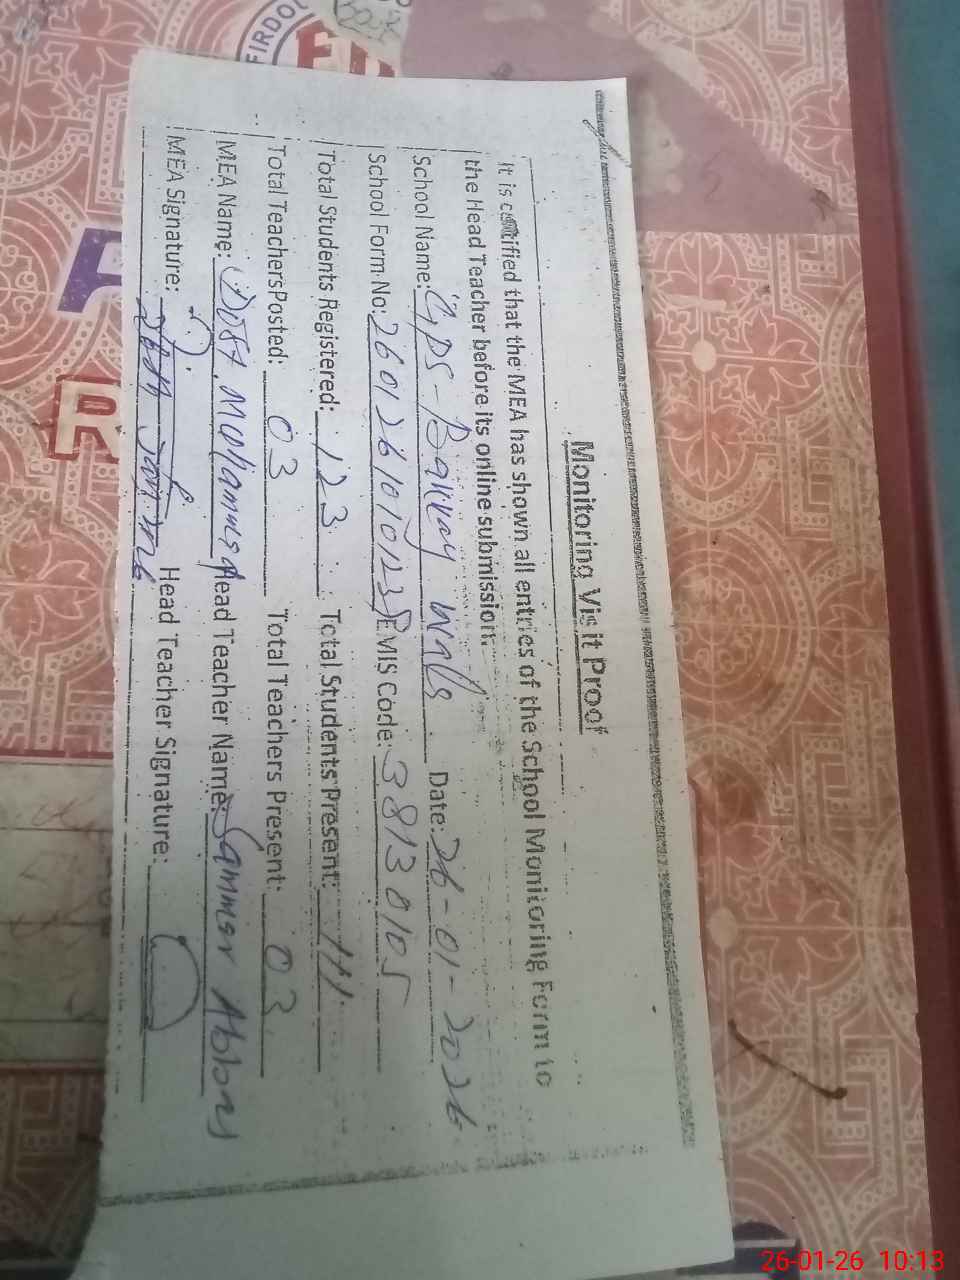 Monitoring Visit Proof
It is certified that the MEA has shown all entries of the School Monitoring Form to
the Head Teacher before its online submission.
School Name: GPS - Date: 26-01-2026
School Form No: EMIS Code: 38130105
Total Students Registered: 123 Total Students Present: 111
Total Teachers Posted: 03 Total Teachers Present: 03
MEA Name: Dost Mohammad Head Teacher Name:
MEA Signature: Head Teacher Signature:
26-01-26 10:13